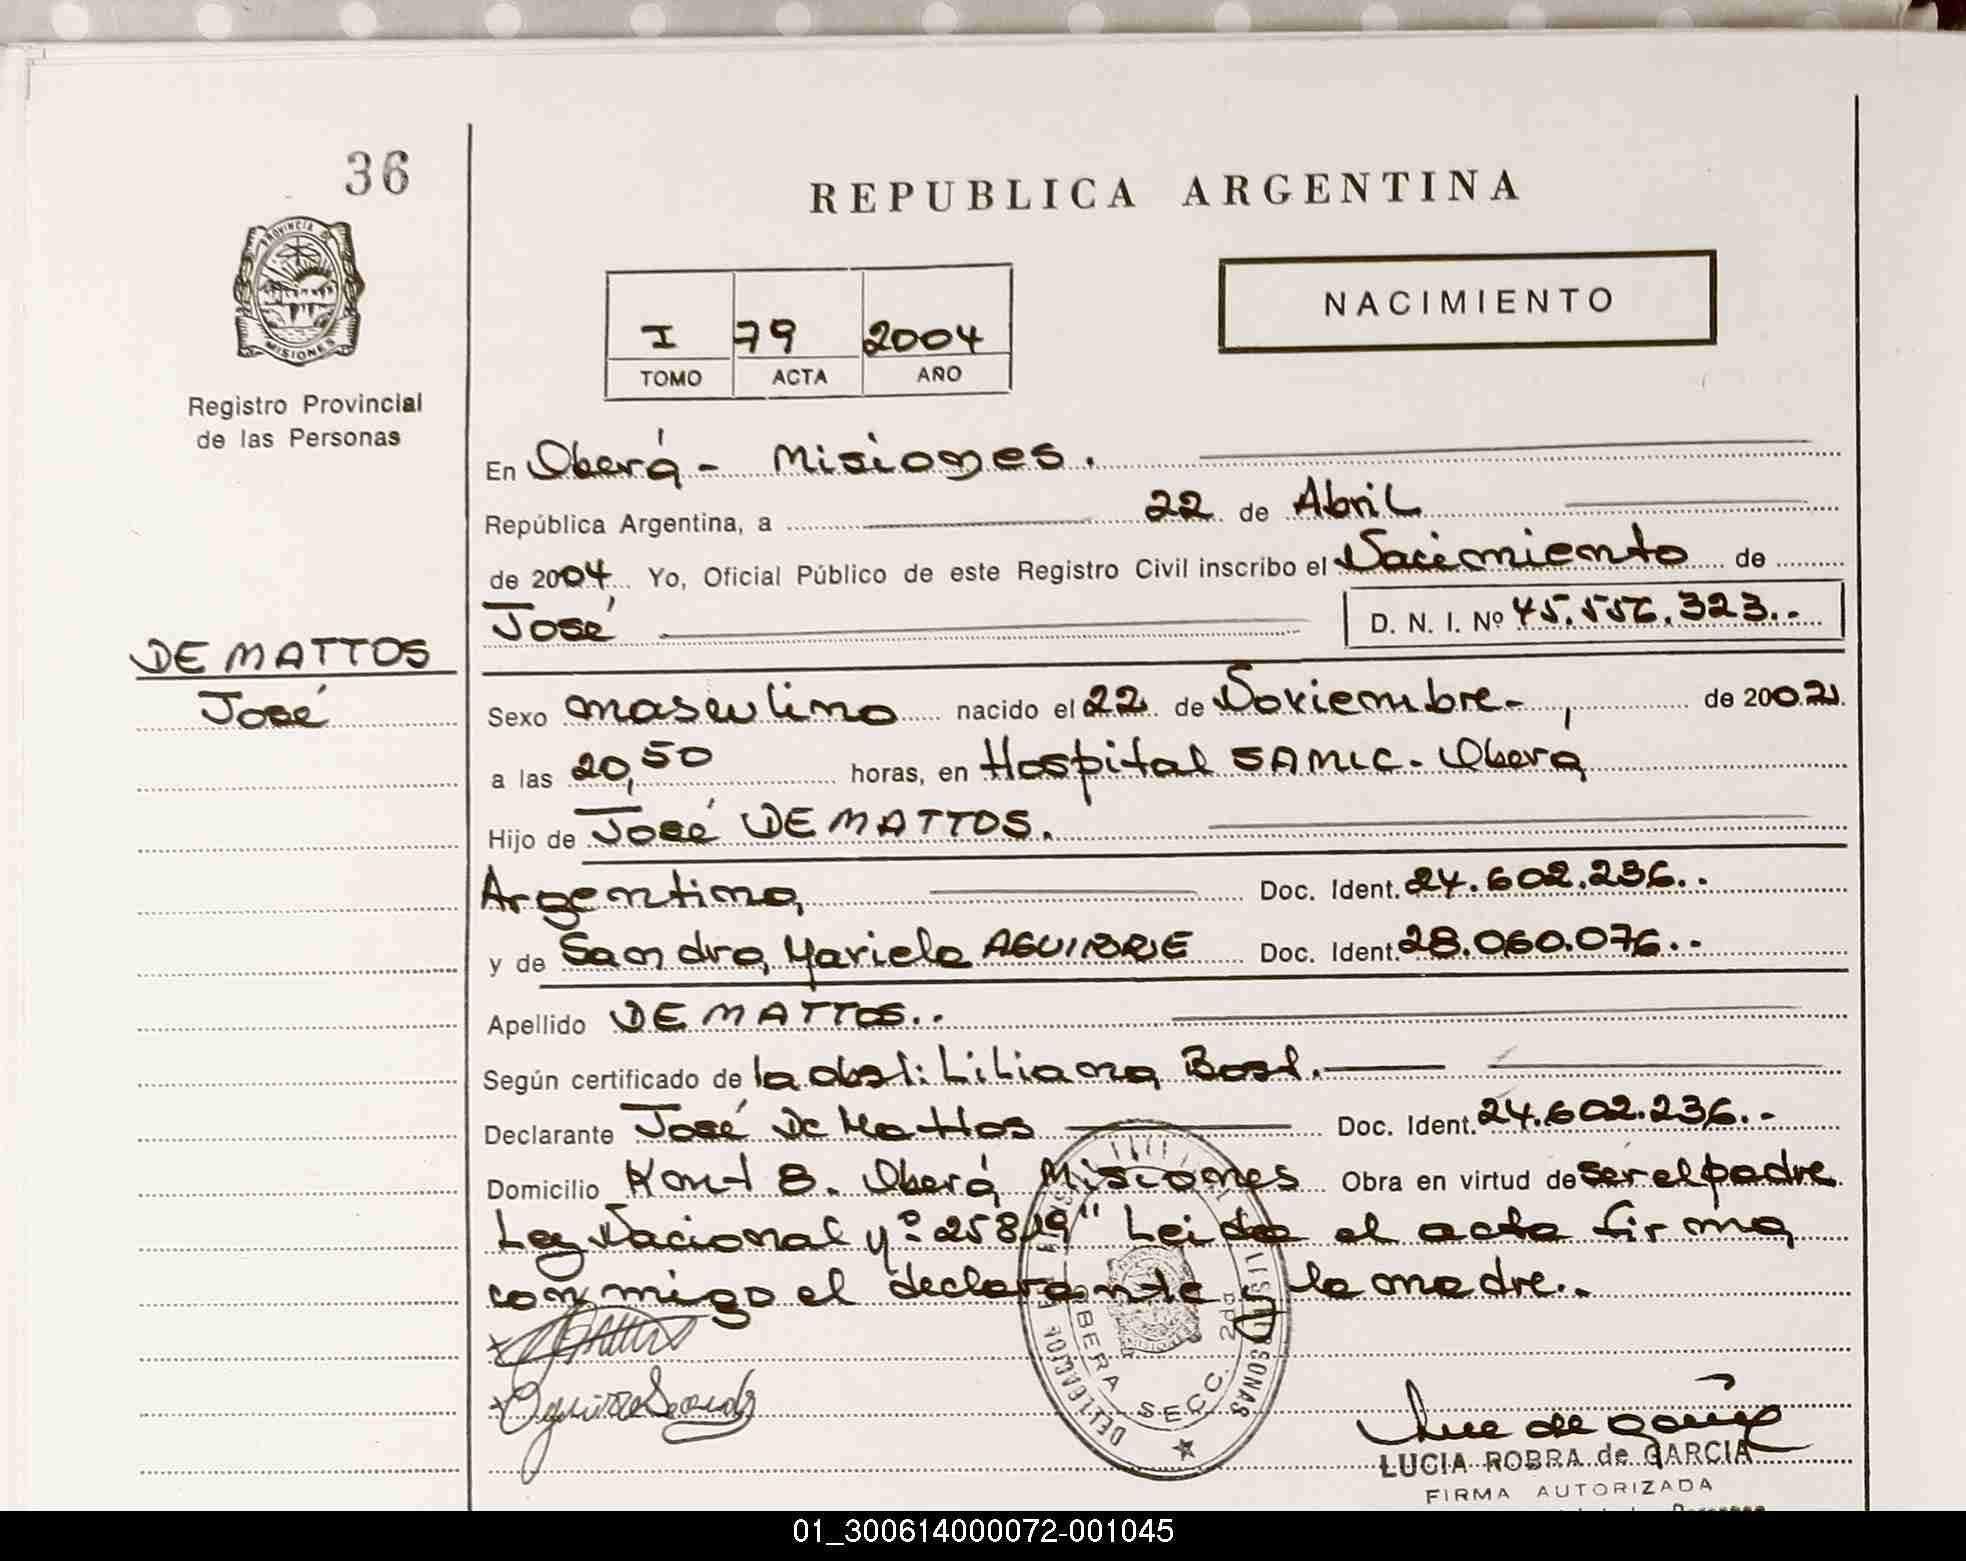 36
REPUBLICA ARGENTINA
PROVINCIA DE
MISIONES
Registro Provincial
de las Personas
NACIMIENTO
I 79 2004
TOMO ACTA AÑO
En Oberá - Misiones.
República Argentina, a 22 de Abril
de 2004 Yo, Oficial Público de este Registro Civil inscribo el Nacimiento de
José D. N. I. Nº 45.556.323.-
DE MATTOS
José
Sexo masculino nacido el 22 de Noviembre-, de 2002
a las 20,50 horas, en Hospital SAMIC. Oberá
Hijo de José DE MATTOS.
Argentina, Doc. Ident. 24.602.236..
y de Sandra Mariela AGUIRRE Doc. Ident. 28.060.076.-
Apellido DE MATTOS..
Según certificado de la obst: Liliana
Declarante José De Mattos Doc. Ident. 24.602.236.-
Domicilio Km 8. Oberá Misiones Obra en virtud de ser el padre
Ley Nacional Nº 25819" Leida el acta firma
conmigo el declarante y la madre..
Aguirre Sandra
OBERA SECC. 2da
LUCIA ROBRA de GARCIA
FIRMA AUTORIZADA
01_300614000072-001045